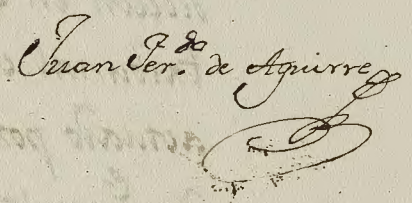 Juan Fer.do de Aguirre